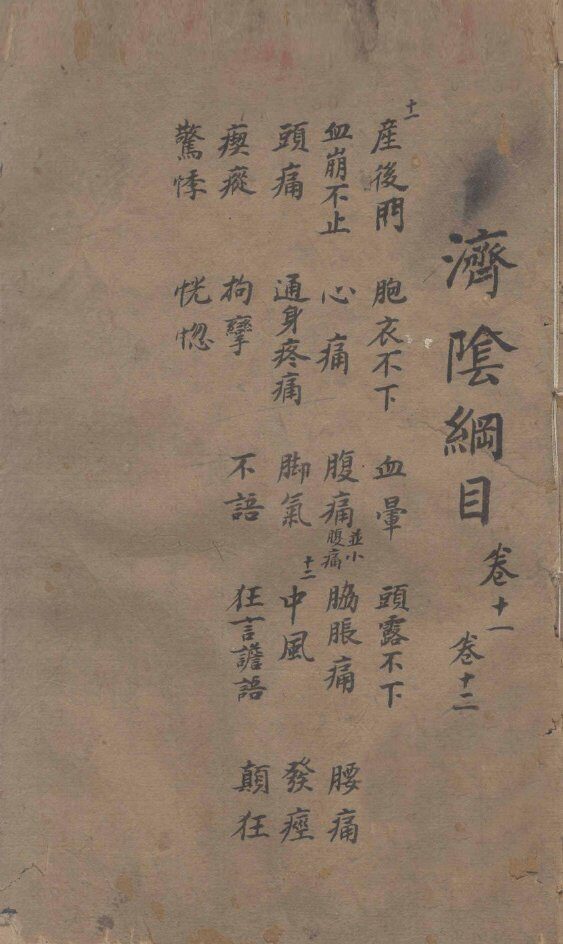 濟陰綱目 卷十一 卷十二
十一 産後門 胞衣不下 血暈 頭露不下
血崩不止 心痛 腹痛並小腹痛 脇脹痛 腰痛
頭痛 通身疼痛 脚氣 十二 中風 發痙
瘈瘲 拘攣 不語 狂言譫語 顛狂
驚悸 恍惚